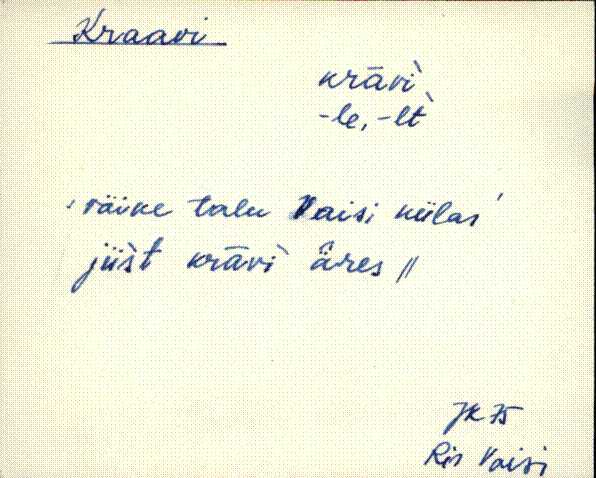 Kraavi
krāvì
-le, -lt̀
‚väike talu Vaisi külas’
jüìst krāvì äres //
JK 75
Rid Vaisi